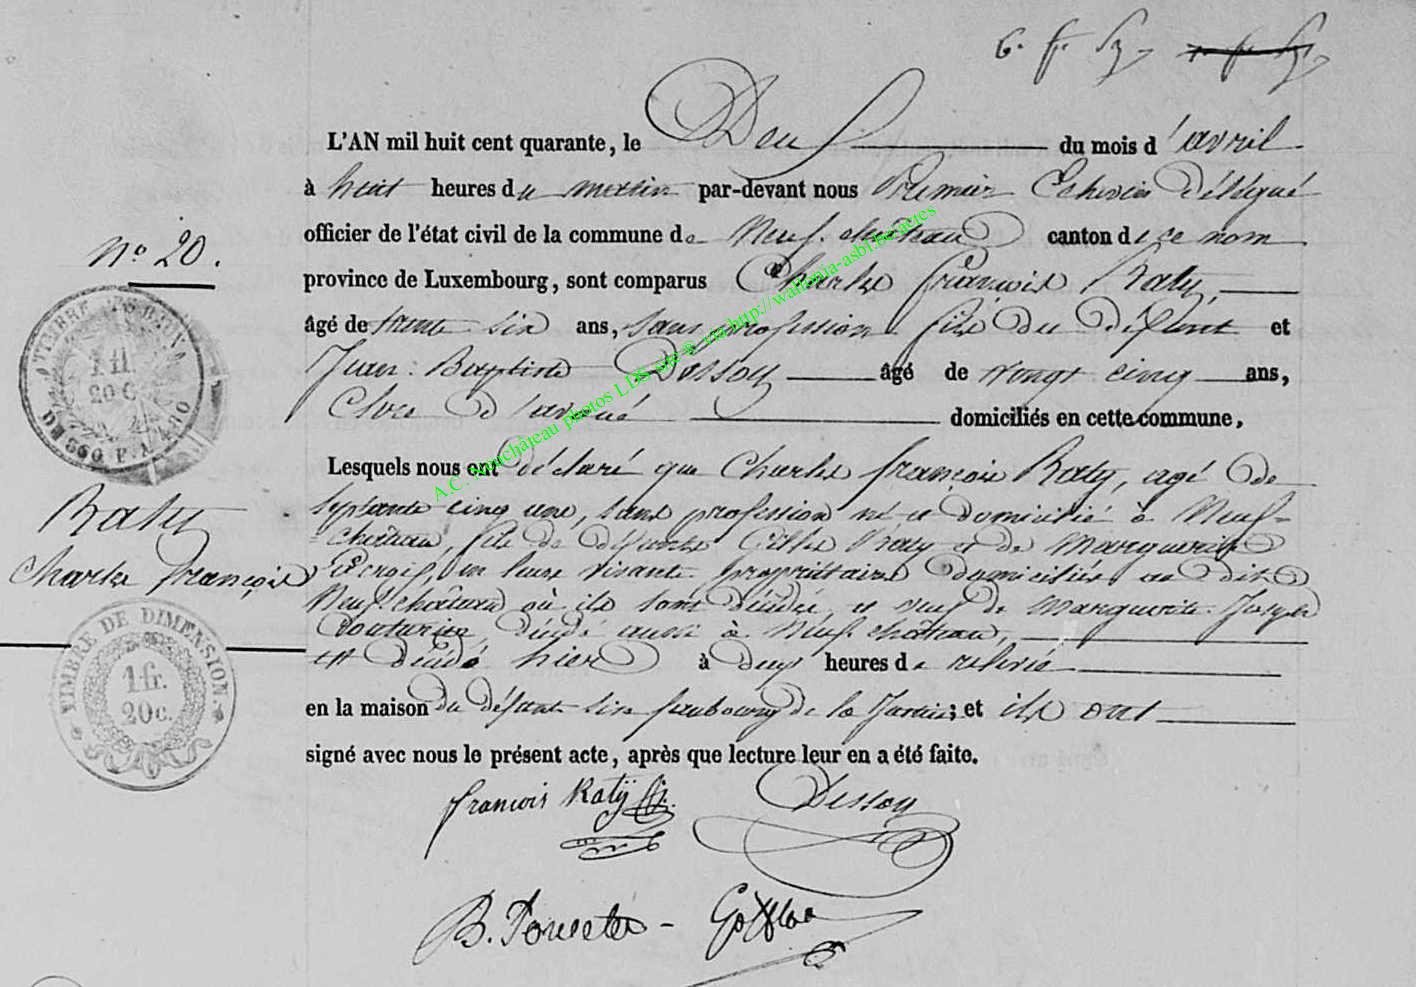 6. fr. 
L'AN mil huit cent quarante, le Deux du mois d'avril
à huit heures du matin par-devant nous Premier Echevin Délégué
officier de l'état civil de la commune de Neuf-chateau canton de ce nom
province de Luxembourg, sont comparus Charles françois Raty,
âgé de trente six ans, sans profession fils du défunt et
Jean-Baptiste Dessoy âgé de vingt cinq ans,
Clerc d'avoué domiciliés en cette commune,
Lesquels nous ont déclaré que Charles françois Raty, agé de
septante cinq ans, sans profession né et domicilié à Neuf-
château, fils de défunts Gilles Raty et de Marguerite
en leur vivant propriétaires domiciliés au dit
Neuf-château où ils sont décédés, et veuf de Marguerite-Joseph
Couturier, décédé aussi à Neufchâteau,
est décédé hier à deux heures de relevée
en la maison du défunt sise faubourg de la ; et ils ont
signé avec nous le présent acte, après que lecture leur en a été faite.
françois Ratÿ fils.
Dessoy
B. Poncelet -
N° 20.
TIMBRE
1 fl.
20 C.
Raty
Charles françois
TIMBRE DE DIMENSION
1 fr.
20 c.
A.C. Neufchâteau photos LDS site @ via http://wallonia-asbl.be/actes